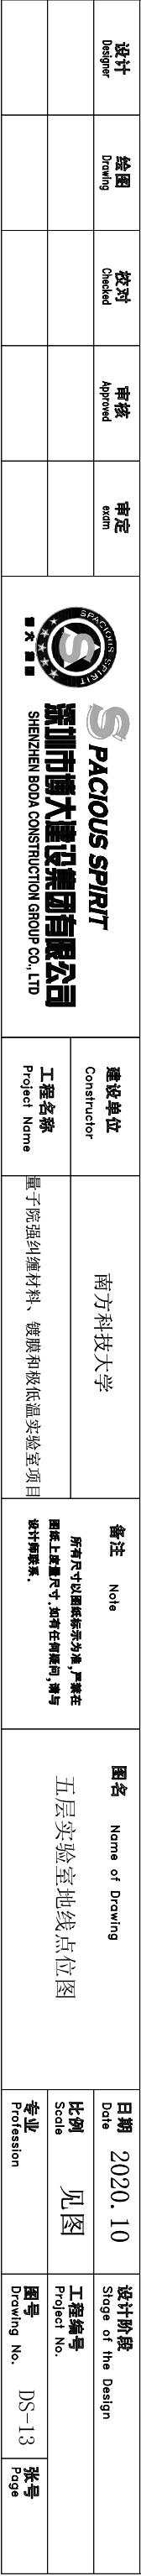 设计
Designer
绘图
Drawing
校对
Checked
审核
Approved
审定
exam
SPACIOUS SPIRIT
S
博大建设
SPACIOUS SPIRIT
深圳市博大建设集团有限公司
SHENZHEN BODA CONSTRUCTION GROUP CO., LTD
建设单位
Constructor
南方科技大学
工程名称
Project Name
量子院强纠缠材料、镀膜和极低温实验室项目
备注 Note
所有尺寸以图纸标示为准,严禁在
图纸上度量尺寸.如有任何疑问,请与
设计师联系.
图名 Name of Drawing
五层实验室地线点位图
日期
Date
2020.10
设计阶段
Stage of the Design
比例
Scale
见图
工程编号
Project No.
专业
Profession
图号
Drawing No.
DS-13
张号
Page